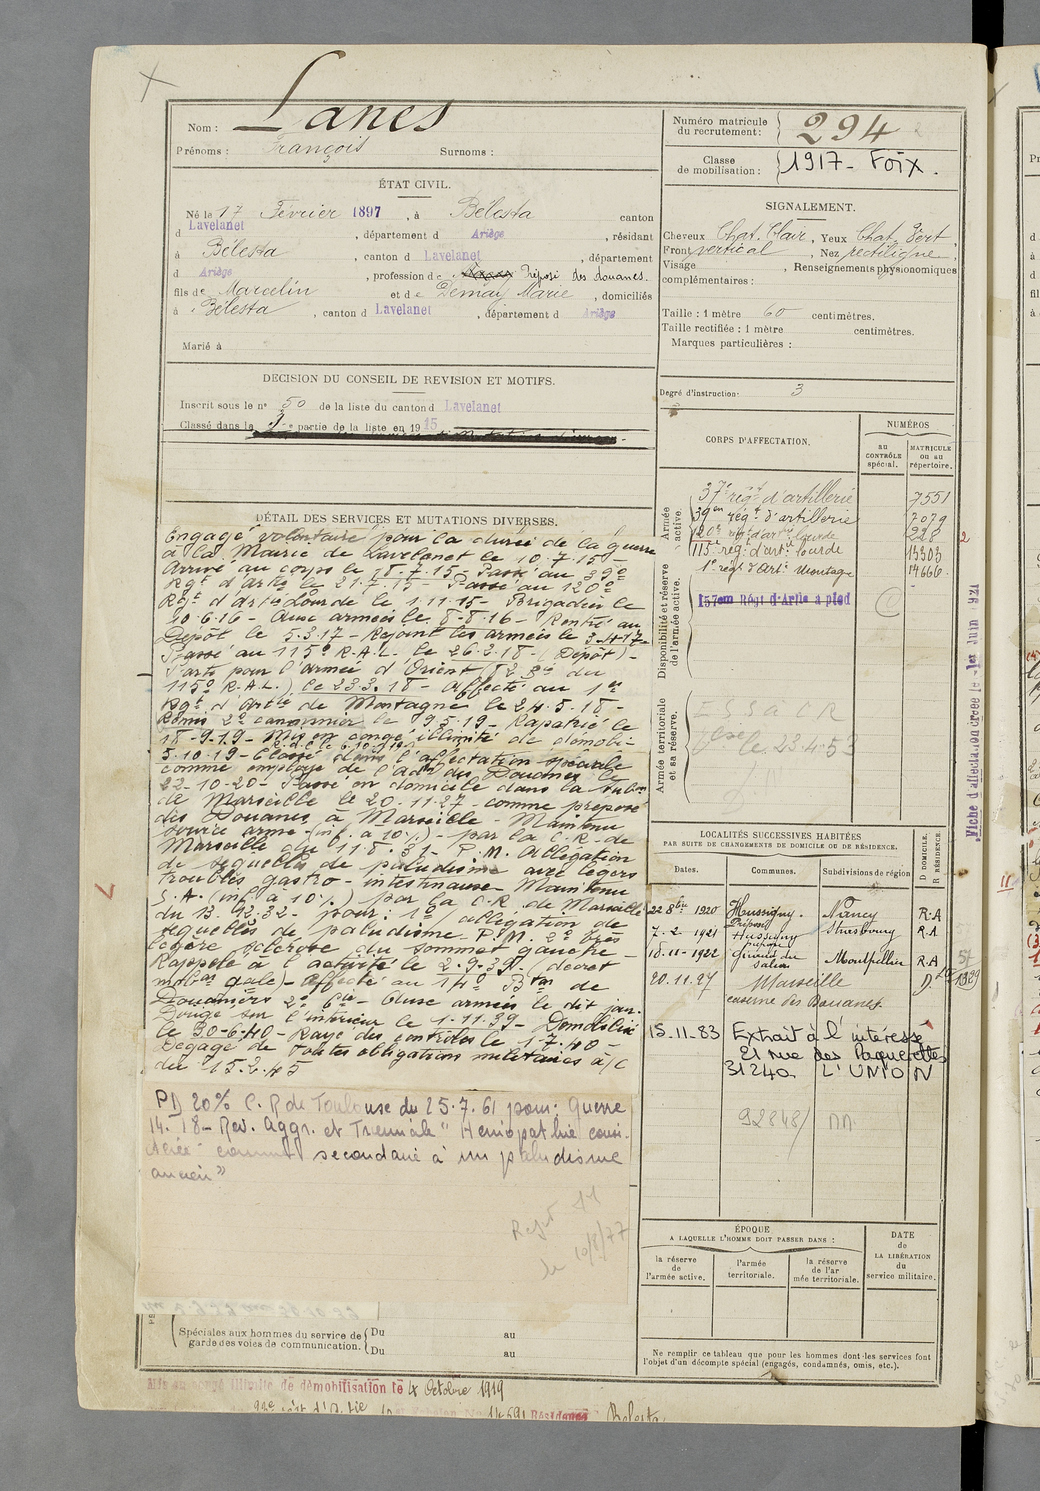 Nom : Lanes
Prénoms : François Surnoms :
ÉTAT CIVIL.
Né le 17 Février 1897, à Bélesta canton
d Lavelanet, département d Ariège, résidant
à Bélesta, canton d Lavelanet, département
d Ariège, profession de Préposé des douanes.
fils de Marcelin et de Demay Marie, domiciliés
à Bélesta, canton d Lavelanet, département d Ariège
Marié à
DECISION DU CONSEIL DE REVISION ET MOTIFS.
Inscrit sous le n° 50 de la liste du canton d Lavelanet
Classé dans la partie de la liste en 1915
DÉTAIL DES SERVICES ET MUTATIONS DIVERSES.
Engagé volontaire pour la durée de la guerre
à la Mairie de Lavelanet le 10.7.15-
Arrivé au corps le 18.7.15- Passé au 39e
Rgt d'Artie le 21.7.15- Passé au 120e
Rgt d'Artie Lourde le 1.11.15- Brigadier le
20.6.16- Aux armées le 8-8-16- Rentré au
Dépôt le 5.3.17- Rejoint les armées le 3.4.17-
Passé au 115e R.A.L. le 26.2.18-(Dépôt)-
Parti pour l'armée d'Orient ( du
115e R.A.L.) le 23.3.18- Affecté au 1er
Rgt d'Artie de Montagne le 24.5.18-
Remis 2e canonnier le 9.5.19- Rapatrié le
18-9-19- Mis en congé illimité de démobi-
5.10.19- Classé dans l'affectation spéciale
comme employé de l'Adon des Douanes le
22-10-20- Passé en domicile dans la subon
de Marseille le 20.11.27- comme préposé
des Douanes à Marseille- Maintenu
service armé-(inf. à 10%)- par la C.R. de
Marseille du 11.8.31- P.M. Allégation
de séquelles de paludisme avec légers
troubles gastro-intestinaux- Maintenu
S.A. (inf à 10%) par la C.R. de Marseille
du 13.12.32- pour: 1°/ allégation de
séquelles de paludisme P.M. 2° très
légère sclérose du sommet gauche-
Rappelé à l'activité le 2.9.39. (décret
mobon gale)- affecté au 14e Bton de
Douaniers 2e Cie- Aux armées le dit jour.
sur l'intérieur le 1-11.39- Démobilisé
le 30-6-40- Rayé des contrôles le 1.7.40-
Dégagé de toutes obligations militaires à/c
du 15.2.45
PD 20% C.R de Toulouse du 25.7.61 pour: Guerre
14.18- Rev. Aggr. et Triennale " consi-
dérée comme secondaire à un paludisme
ancien"
10/8/77
Spéciales aux hommes du service de garde des voies de communication. Du au
Du au
Mis en congé illimité de démobilisation le 4 Octobre 1919
Bélesta
Numéro matricule du recrutement : 294
Classe de mobilisation : 1917- Foix.
SIGNALEMENT.
Cheveux Chat. Clair, Yeux Chat. Vert,
Front vertical, Nez rectiligne.
Visage , Renseignements physionomiques
complémentaires :
Taille : 1 mètre 60 centimètres.
Taille rectifiée : 1 mètre centimètres.
Marques particulières :
Degré d'instruction : 3
CORPS D'AFFECTATION.
NUMÉROS
au CONTRÔLE spécial.
MATRICULE ou au répertoire.
Armée active.
37e régt d'artillerie 7551
39e régt d'artillerie 7079
120e régt d'art lourde 228
115e régt d'artie lourde 13303
1e régt d'Artie Montagne 14666
Disponibilité et réserve de l'armée active.
157em Régt d'Artie à pied
Armée territoriale et sa réserve.
le 23.4.53
Fiche d'affectation créée le 1er Juin 1921
LOCALITÉS SUCCESSIVES HABITÉES
PAR SUITE DE CHANGEMENTS DE DOMICILE OU DE RÉSIDENCE.
Dates. Communes. Subdivisions de région D DOMICILE. R RÉSIDENCE.
22 8bre 1920 Hussigny. Nancy R.A
7-2 1921 Préposé Hussigny Strasbourg R.A.
10-11-1922 préposé Montpellier R A
20.11.27 Marseille D
caserne des Douanes
15.11.83 Extrait à l'intéressé
21 rue des Paquerettes
31240 L'UNION
92848/
ÉPOQUE
A LAQUELLE L'HOMME DOIT PASSER DANS :
la réserve de l'armée active.
l'armée territoriale.
la réserve de l'armée territoriale.
DATE de LA LIBÉRATION du service militaire.
Ne remplir ce tableau que pour les hommes dont les services font
l'objet d'un décompte spécial (engagés, condamnés, omis, etc.).